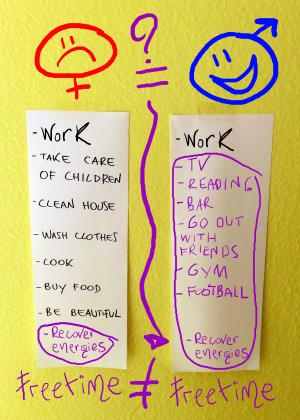 ?
=
- WORK
- TAKE CARE
OF CHILDREN
- CLEAN HOUSE
- WASH CLOTHES
- COOK
- BUY FOOD
- BE BEAUTIFUL
- Recover
energies
- WORK
- TV
- READING
- BAR
- GO OUT
WITH
FRIENDS
- GYM
- FOOTBALL
- Recover
energies
Freetime ≠ Freetime